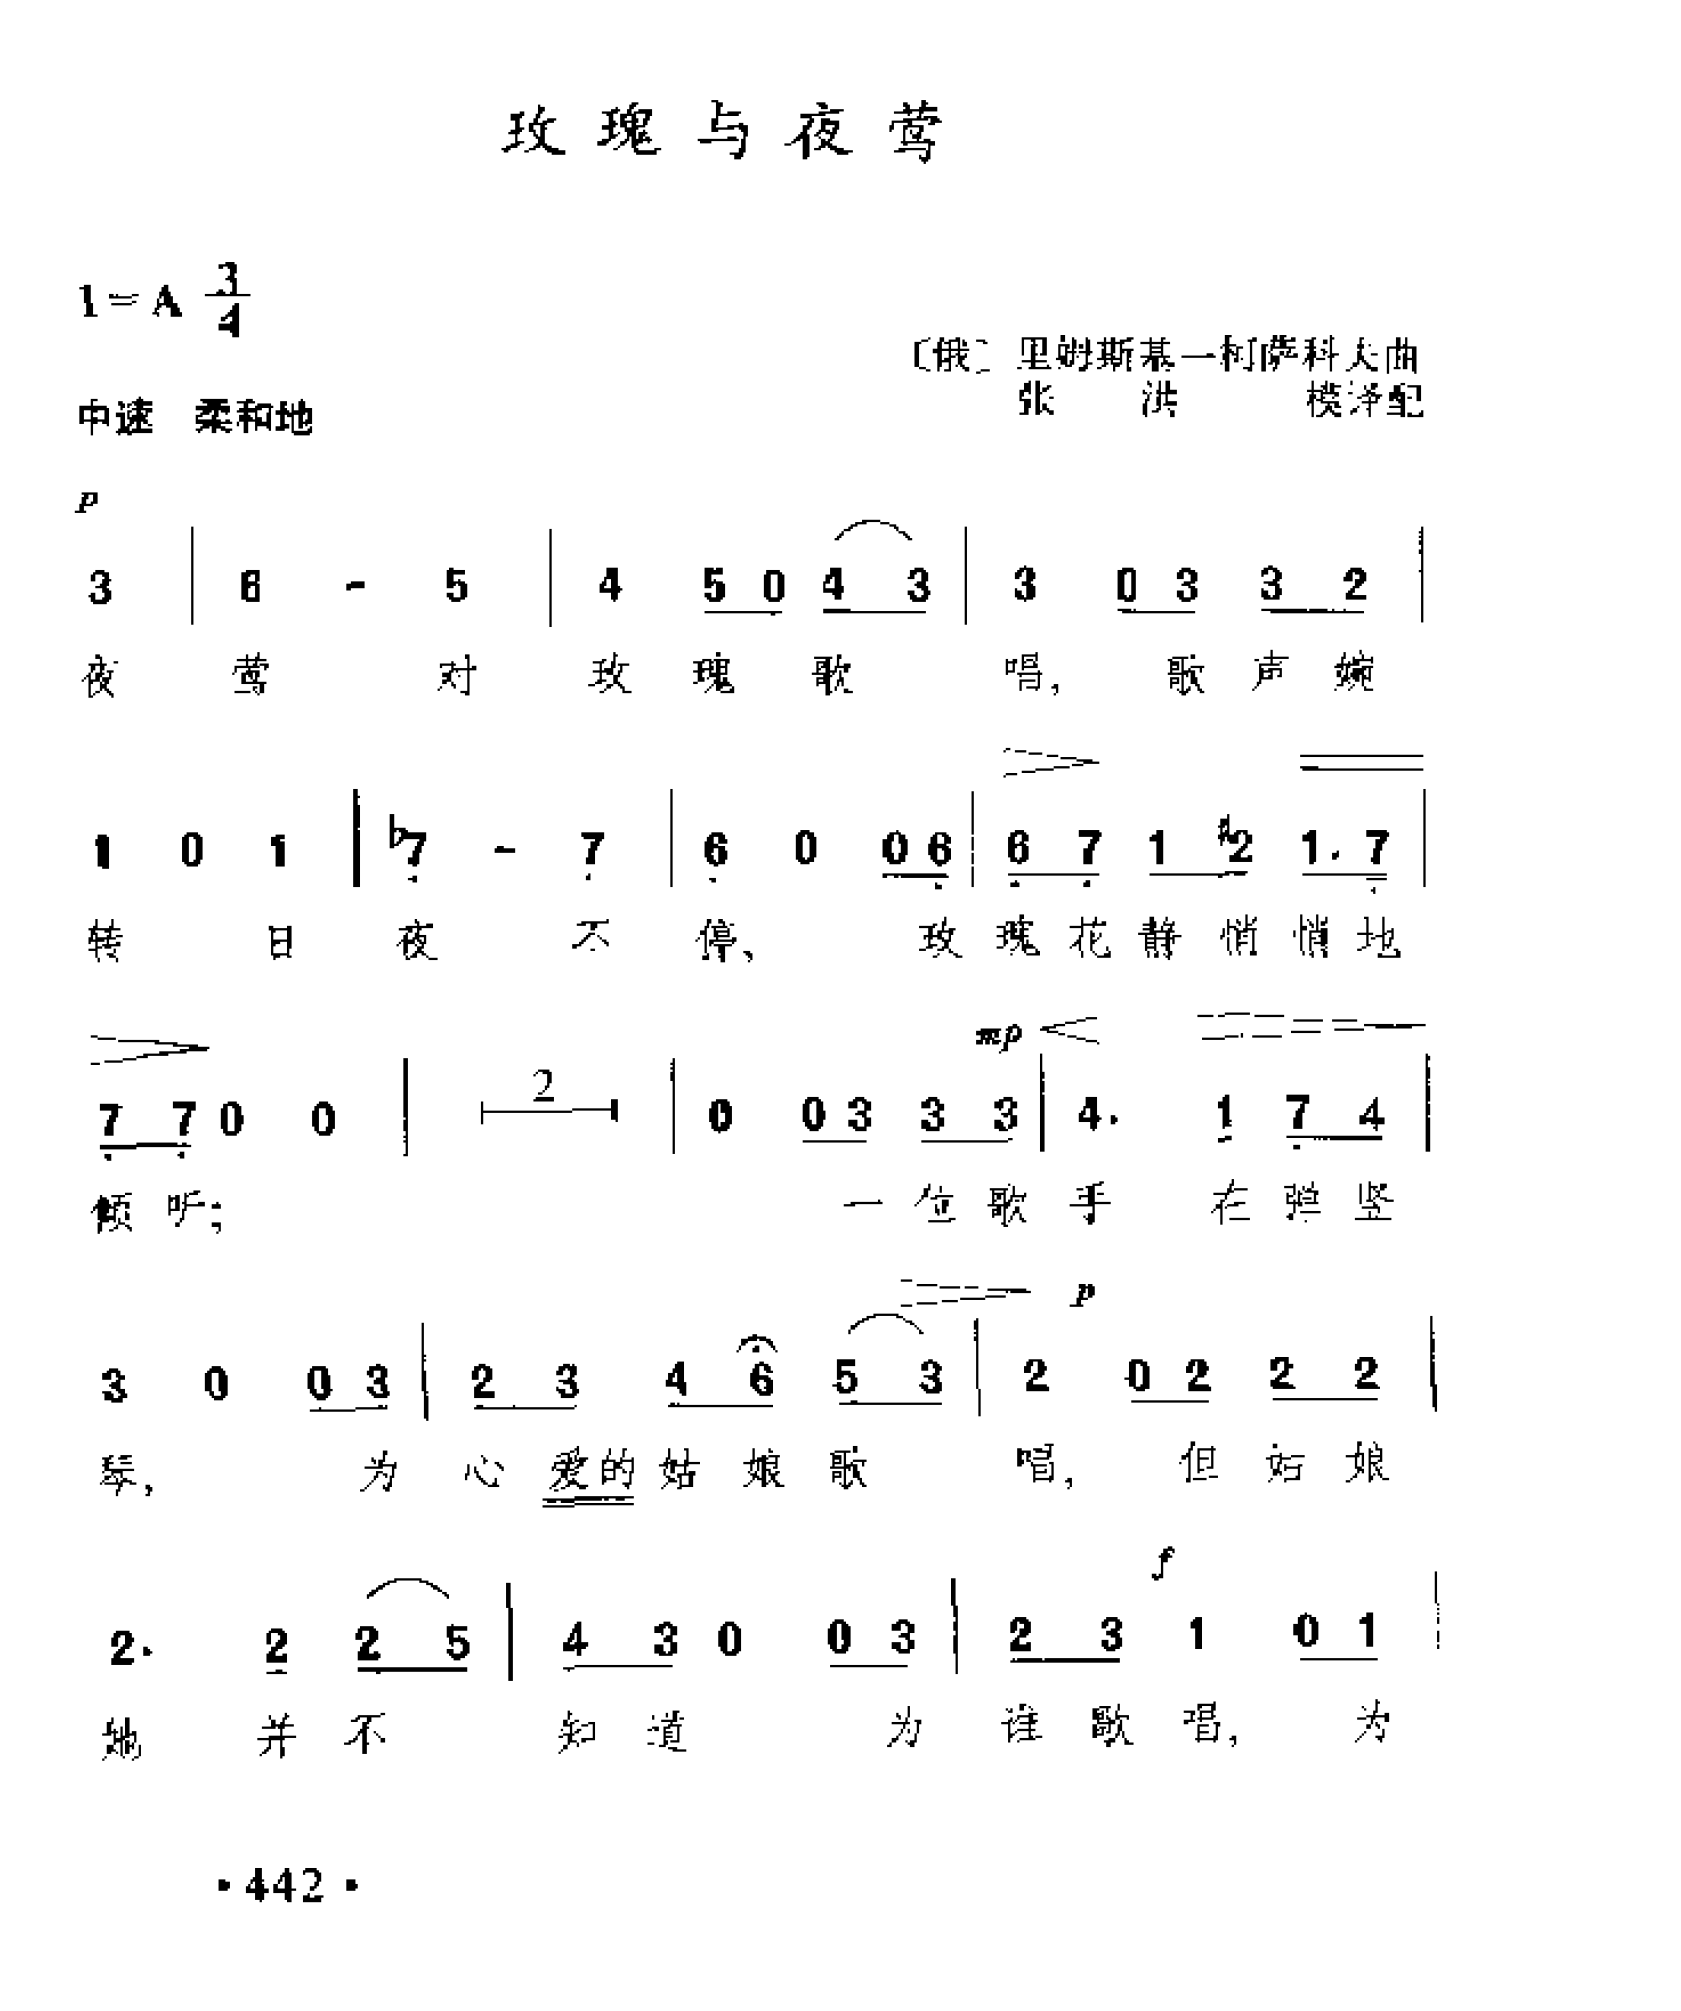 玫瑰与夜莺
1=A 3/4
〔俄〕里姆斯基—柯萨科夫曲
张洪模译配
中速 柔和地
p
3 | 6 - 5 | 4 5 0 4 3 | 3 0 3 3 2 |
夜 莺 对 玫 瑰 歌 唱, 歌 声 婉
1 0 1 | ♭7 - 7 | 6 0 0 6 | 6 7 1 ♯2 1. 7 |
转 日 夜 不 停、 玫 瑰 花 静 悄 悄 地
mp
7 7 0 0 | 2 | 0 0 3 3 3 | 4. 1 7 4 |
倾 听; 一 位 歌 手 在 弹 竖
p
3 0 0 3 | 2 3 4 6 5 3 | 2 0 2 2 2 |
琴, 为 心 爱的 姑 娘 歌 唱, 但 姑 娘
f
2. 2 2 5 | 4 3 0 0 3 | 2 3 1 0 1 |
她 并 不 知 道 为 谁 歌 唱, 为
·442·